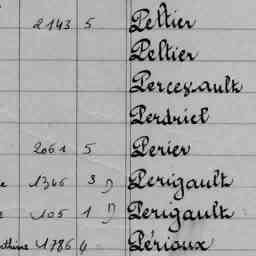 2143 5 Peltier
Peltier
Percevault
Perdriel
2061 5 Perier
1346 3 Perigault
105 1 Perigault
1786 4 Périoux